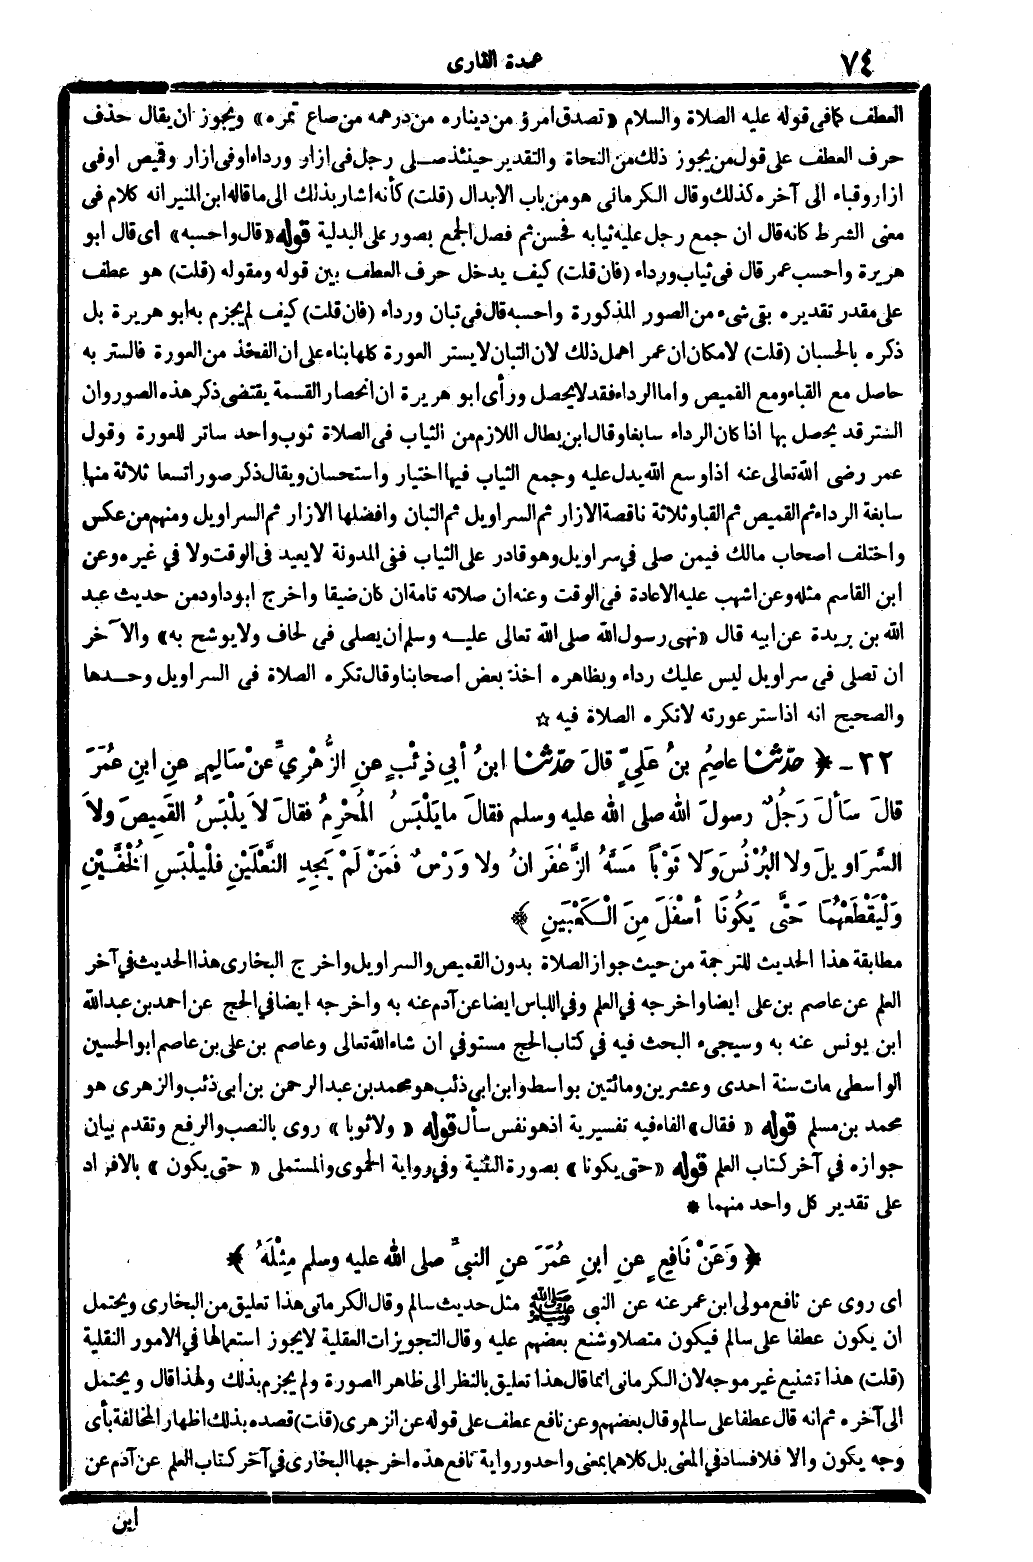 ٧٤
عمدة القارى
العطف كما فى قوله عليه الصلاة والسلام «تصدق امرؤ من ديناره من درهمه من صاع تمره» ويجوز ان يقال حذف
حرف العطف على قول من يجوز ذلك من النحاة والتقدير حينئذ صلى رجل فى ازار ورداء او فى ازار وقميص او فى
ازار وقباء الى آخره كذلك وقال الكرمانى هو من باب الابدال (قلت) كأنه اشار بذلك الى ما قاله ابن المنير انه كلام فى
معنى الشرط كانه قال ان جمع رجل عليه ثيابه فحسن ثم فصل الجمع بصور على البدلية قوله «قال واحسبه» اى قال ابو
هريرة واحسب عمر قال فى ثياب ورداء (فان قلت) كيف يدخل حرف العطف بين قوله ومقوله (قلت) هو عطف
على مقدر تقديره بقى شىء من الصور المذكورة واحسبه قال فى تبان ورداء (فان قلت) كيف لم يجزم به ابو هريرة بل
ذكره بالحسبان (قلت) لامكان ان عمر اهمل ذلك لان التبان لا يستر العورة كلها بناء على ان الفخذ من العورة فالستر به
حاصل مع القباء ومع القميص واما الرداء فقد لا يحصل ورأى ابو هريرة ان انحصار القسمة يقتضى ذكر هذه الصور وان
الستر قد يحصل بها اذا كان الرداء سابغا وقال ابن بطال اللازم من الثياب فى الصلاة ثوب واحد ساتر للعورة وقول
عمر رضى الله تعالى عنه اذا وسع الله يدل عليه وجمع الثياب فيها اختيار واستحسان ويقال ذكر صورا تسعا ثلاثة منها
سابغة الرداء ثم القميص ثم القبا وثلاثة ناقصة الازار ثم السراويل ثم التبان وافضلها الازار ثم السراويل ومنهم من عكس
واختلف اصحاب مالك فيمن صلى فى سراويل وهو قادر على الثياب ففى المدونة لا يعيد فى الوقت ولا فى غيره وعن
ابن القاسم مثله وعن اشهب عليه الاعادة فى الوقت وعنه ان صلاته تامة ان كان ضيقا واخرج ابو داود من حديث عبد
الله بن بريدة عن ابيه قال «نهى رسول الله صلى الله تعالى عليه وسلم ان يصلى فى لحاف ولا يوشح به» والآخر
ان تصلى فى سراويل ليس عليك رداء وبظاهره اخذ بعض اصحابنا وقال تكره الصلاة فى السراويل وحدها
والصحيح انه اذا ستر عورته لا تكره الصلاة فيه ☆
٣٢ - ﴿ حَدَّثنا عاصِمُ بنُ عَلِيٍّ قالَ حَدَّثنا ابنُ أبي ذِئْبٍ عنِ الزُّهْرِيِّ عنْ سَالِمٍ عنِ ابنِ عُمَرَ
قالَ سَأَلَ رَجُلٌ رسولَ الله صلى الله عليه وسلم فقالَ ما يَلْبَسُ المُحْرِمُ فقالَ لاَ يَلْبَسُ القَمِيصَ ولاَ
السَّرَاوِيلَ ولا البُرْنُسَ وَلا ثَوْباً مَسَّهُ الزَّعْفَرَانُ ولا وَرْسٌ فَمَنْ لَمْ يَجِدِ النَّعْلَيْنِ فلْيلْبَسِ الخُفَّيْنِ
وَلْيَقْطَعْهُما حَتَّى يَكُونَا أسْفَلَ مِنَ الْكَعْبَيْنِ ﴾
مطابقة هذا الحديث للترجمة من حيث جواز الصلاة بدون القميص والسراويل واخرج البخارى هذا الحديث في آخر
العلم عن عاصم بن على ايضا واخرجه في العلم وفي اللباس ايضا عن آدم عنه به واخرجه ايضا في الحج عن احمد بن عبد الله
ابن يونس عنه به وسيجىء البحث فيه في كتاب الحج مستوفي ان شاء الله تعالى وعاصم بن على بن عاصم ابو الحسين
الواسطى مات سنة احدى وعشرين ومائتين بواسط وابن ابى ذئب هو محمد بن عبد الرحمن بن ابى ذئب والزهرى هو
محمد بن مسلم قوله «فقال» الفاء فيه تفسيرية اذ هو نفس سأل قوله «ولا ثوبا» روى بالنصب والرفع وتقدم بيان
جوازه في آخر كتاب العلم قوله «حتى يكونا» بصورة التثنية وفي رواية الحموى والمستملى «حتى يكون» بالافراد
على تقدير كل واحد منهما *
﴿ وَعَنْ نَافِعٍ عنِ ابنِ عُمَرَ عنِ النبيِّ صلى الله عليه وسلم مِثْلَهُ ﴾
اى روى عن نافع مولى ابن عمر عنه عن النبى ﷺ مثل حديث سالم وقال الكرمانى هذا تعليق من البخارى ويحتمل
ان يكون عطفا على سالم فيكون متصلا وشنع بعضهم عليه وقال التجويزات العقلية لا يجوز استعمالها في الامور النقلية
(قلت) هذا تشنيع غير موجه لان الكرمانى انما قال هذا تعليق بالنظر الى ظاهر الصورة ولم يجزم بذلك ولهذا قال ويحتمل
الى آخره ثم انه قال عطفا على سالم وقال بعضهم وعن نافع عطف على قوله عن الزهرى (قلت) قصده بذلك اظهار المخالفة بأى
وجه يكون والا فلا فساد في المعنى بل كلاهما بمعنى واحد ورواية نافع هذه اخرجها البخارى في آخر كتاب العلم عن آدم عن
ابن